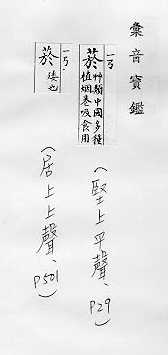 彙音寶鑑
一ㄢ
菸
艸類中國多種
植烟卷吸食用
(堅上平聲、P29)
一ㄢ
菸
矮也
(居上上聲、P501)